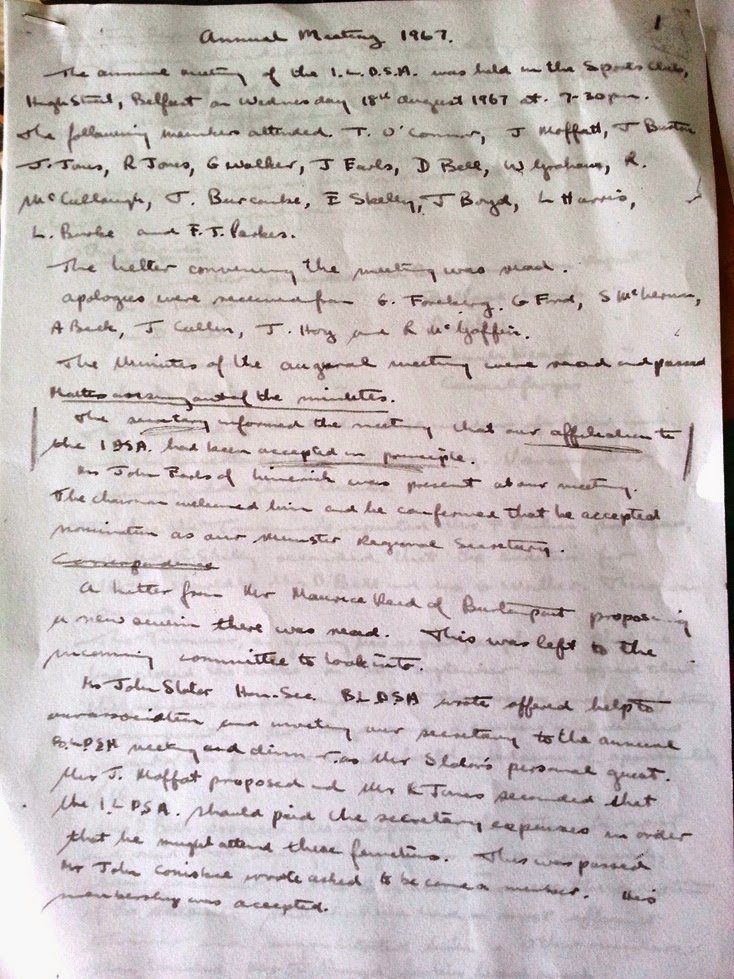 1
Annual Meeting 1967.
The annual meeting of the I.L.D.S.A. was held in the Sports Club,
High Street, Belfast on Wednesday 18th August 1967 at 7-30pm.
The following members attended. T. O'Connor, J Moffatt, J
J. Jones, R Jones, G Walker, J Earls, D Bell, W Graham, R.
McCullough, J. Burcombe, E Skelly, J Boyd, L Harris,
L. Burke and F.J. Parkes.
The letter convening the meeting was read.
apologies were received from G. G Ford, S
A Beck, J Cullin, J. Hoy and R McGaffin.
The Minutes of the augural meeting were read and passed
Matters arising out of the minutes.
The secretary informed the meeting that our affiliation to
the I DSA. had been accepted in principle.
Mr John Earls of Limerick was present at our meeting.
The chairman welcomed him and he confirmed that he accepted
nomination as our Munster Regional Secretary.
Correspondence
A letter from Mr Maurice Head of proposing
a new swim there was read. This was left to the
incoming committee to look into.
Mr John Slator Hon. Sec. BLDSA wrote offered help to
our association and inviting our secretary to the annual
BLDSA meeting and dinner as Mr Slator's personal guest.
Mr J. Moffat proposed and Mr R Jones seconded that
the I.L.D.S.A. should paid the secretary expenses in order
that he might attend these functions. This was passed
Mr John wrote asked to become a member. His
membership was accepted.